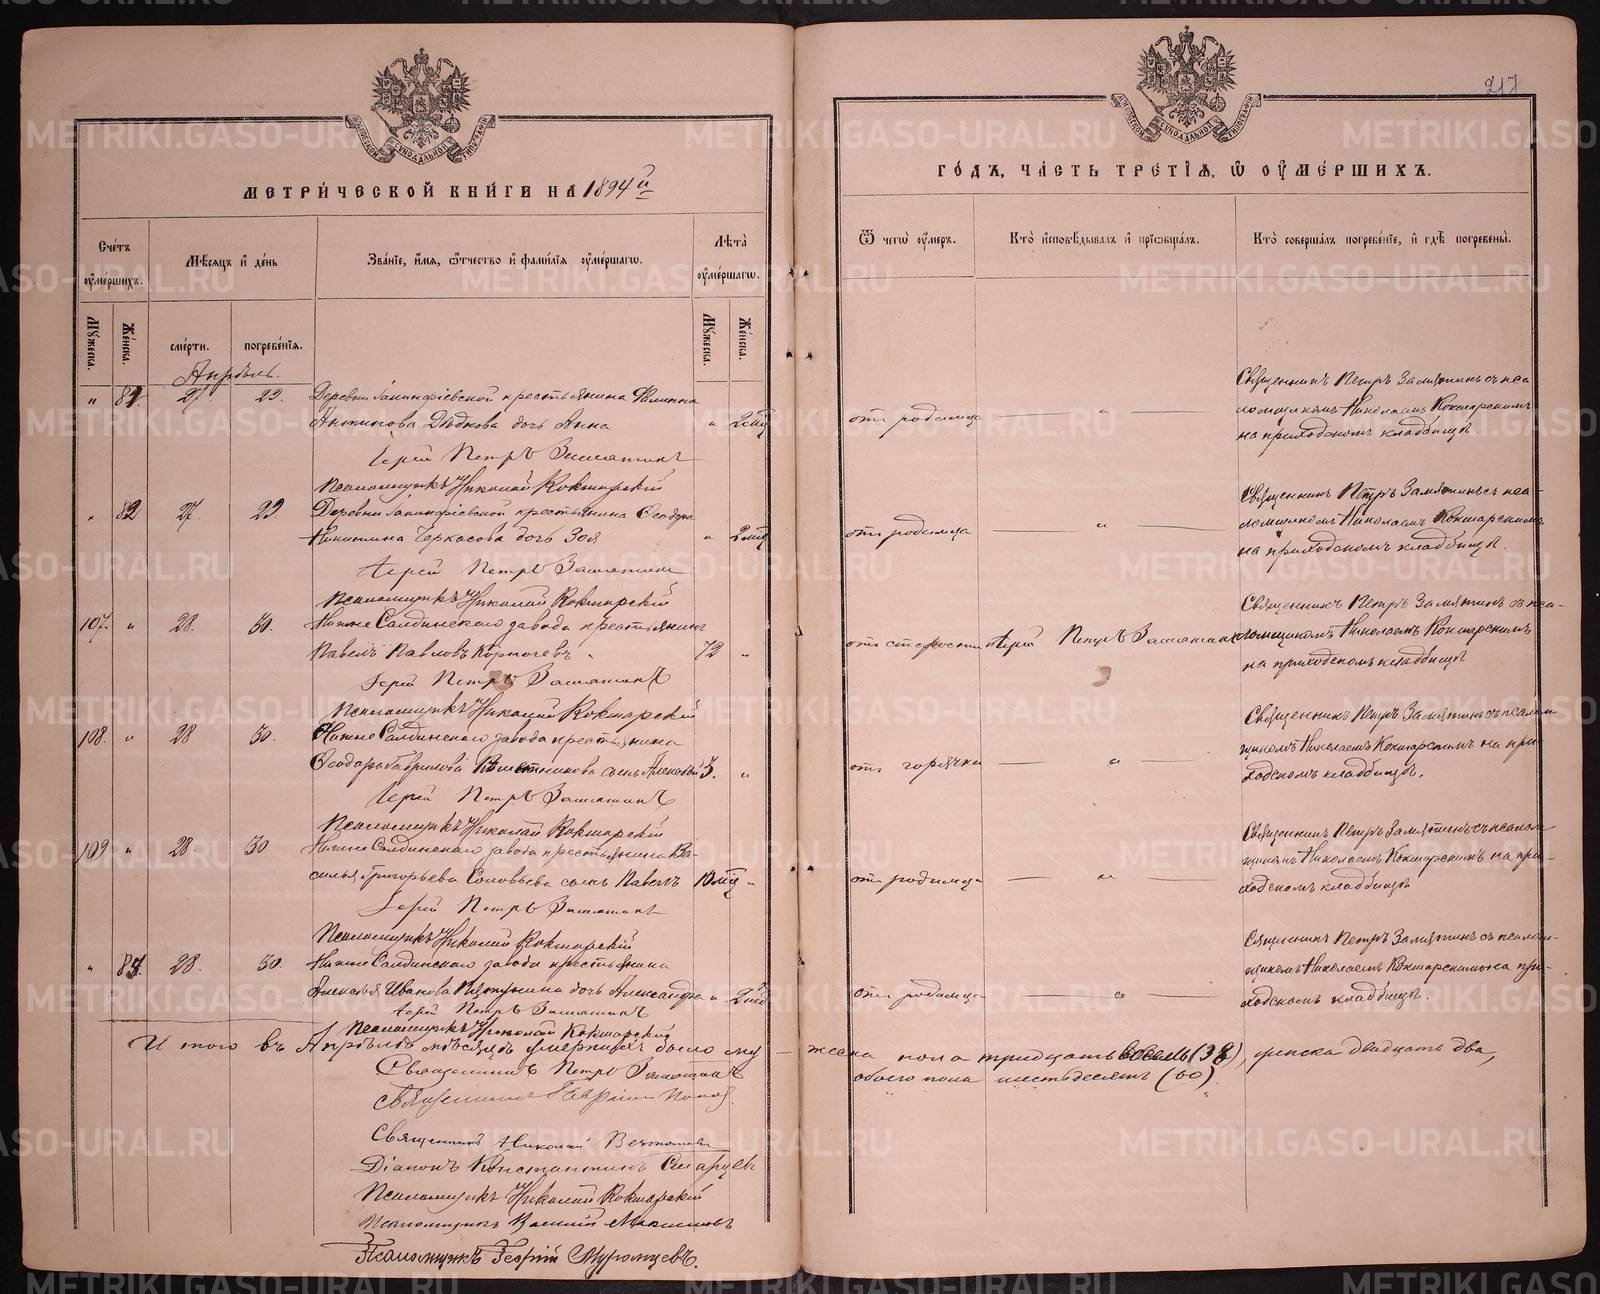 217
МЕТРИЧЕСКОЙ КНИГИ НА 1894 й
Счетъ умершихъ.
Мѣсяцъ и день
Званіе, имя, отчество и фамилія умершаго.
Лѣта умершаго.
Мужеска.
Женска.
смерти.
погребенія.
Мужеска.
Женска.
Апрѣль.
" 81. 27 29. Деревни Акинфіевской крестьянина Филиппа
Антипова Дѣдкова дочь Анна " 2 мц
Іерей Петръ Замятинъ
Псаломщикъ Николай Кокшарскій
" 82 27. 29. Деревни Акинфіевской крестьянина Ѳеодора
Никитина Черкасова дочь Зоя " 2 мц
Іерей Петръ Замятинъ
Псаломщикъ Николай Кокшарскій
107. " 28. 30. Нижне Салдинскаго завода крестьянинъ
Павелъ Павловъ 72 "
Іерей Петръ Замятинъ
Псаломщикъ Николай Кокшарскій
108. " 28 30. Нижне Салдинскаго завода крестьянина
Ѳеодора Гаврилова сынъ Алексѣй 3. "
Іерей Петръ Замятинъ
Псаломщикъ Николай Кокшарскій
109 " 28. 30 Нижне Салдинскаго завода крестьянина Ва-
силья Григорьева Соловьева сынъ Павелъ 10 мц "
Іерей Петръ Замятинъ
Псаломщикъ Николай Кокшарскій
" 83. 28. 30. Нижне Салдинскаго завода крестьянина
Алексѣя Иванова дочь Александра " 2
Іерей Петръ Замятинъ
Псаломщикъ Николай Кокшарскій
Итого въ Апрѣлѣ мѣсяцѣ умершихъ было му
Священникъ Петръ Замятинъ
Священникъ Гавріилъ Поповъ
Священникъ Николай
Діаконъ Константинъ Старцевъ
Псаломщикъ Николай Кокшарскій
Псаломщикъ Василій
Псаломщикъ Георгій Муромцевъ.
ГОДЪ, ЧАСТЬ ТРЕТІЯ, Ѡ УМЕРШИХЪ.
Ѿ чегѡ умеръ.
Кто исповѣдывалъ и пріобщалъ.
Кто совершалъ погребеніе, и гдѣ погребены.
отъ родимца — " —
Священникъ Петръ Замятинъ съ пса
ломщикомъ Николаемъ Кокшарскимъ
на приходскомъ кладбищѣ
отъ родимца — " —
Священникъ Петръ Замятинъ съ пса-
ломщикомъ Николаемъ Кокшарскимъ
на приходскомъ кладбищѣ.
отъ старости Іерей Петръ Замятинъ
Священникъ Петръ Замятинъ съ пса-
ломщикомъ Николаемъ Кокшарскимъ
на приходскомъ кладбищѣ
отъ горячки — " —
Священникъ Петръ Замятинъ съ псалом
щикомъ Николаемъ Кокшарскимъ на при-
ходскомъ кладбищѣ.
отъ родимца — " —
Священникъ Петръ Замятинъ съ псалом
щикомъ Николаемъ Кокшарскимъ на при-
ходскомъ кладбищѣ
отъ родимца — " —
Священникъ Петръ Замятинъ съ псалом-
щикомъ Николаемъ Кокшарскимъ на при-
ходскомъ кладбищѣ.
жеска пола тридцать восемь (38), женска двадцать два,
обоего пола шестьдесятъ (60).
METRIKI.GASO-URAL.RU